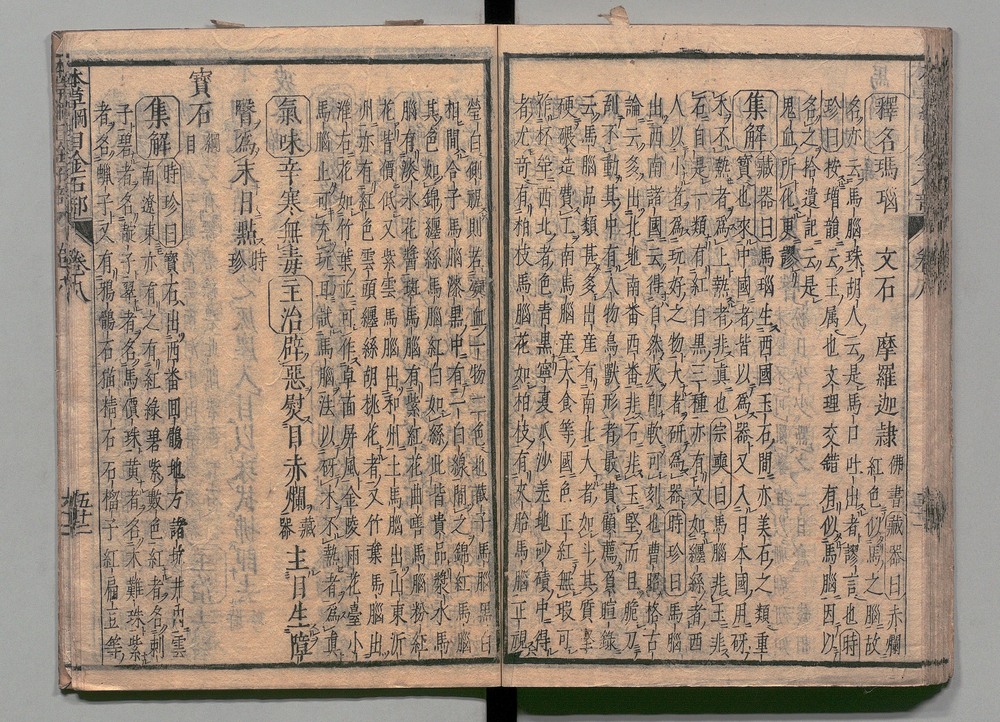 釋名瑪瑙 文石 摩羅迦隷 佛書藏器曰赤爛
紅色似馬之腦故
名亦云馬腦珠胡人云是馬口吐出者謬言也時
珍曰按增韻云玉属也文理交錯有似馬腦因以
名之拾遺記云是
鬼血所化更謬
集解 藏器曰馬瑙生西國玉石間亦美石之類重
寶也來中國者皆以爲器又入日本國用砑
木不熱者爲上熱者非真也宗奭曰馬腦非玉非
石自是一類有紅白黑三種亦有文如纏絲者西
人以小者爲玩好之物大者研爲器時珍曰馬腦
出西南諸國云得自然灰即軟可刻也曹昭格古
論云多出北地南番西番非石非玉堅而且脆刀
刮不動其中有人物鳥獸形者最貴顧薦負暄錄
云馬腦品類甚多出産有南北大者如斗其質堅
硬碾造費工南馬腦産大食等國色正紅無瑕可
作杯斝西北者色青黑寧夏瓜沙羌地砂磧中得
者尤奇有柏枝馬腦花如柏枝有夾胎馬腦正視
瑩白側視則若凝血一物二色也截子馬腦黑白
相間合子馬腦漆黑中有一白線間之錦紅馬腦
其色如錦纏絲馬腦紅白如絲此皆貴品漿水馬
腦有淡水花醬斑馬腦有紫紅花曲蟮馬腦粉紅
花皆價低又紫雲馬腦出和州土馬腦出山東沂
州亦有紅色雲頭纏絲胡桃花者又竹葉馬腦出
淮右花如竹葉並可作卓面屏風金陵雨花臺小
馬腦止可充玩耳試馬腦法以砑木不熱者爲真
氣味辛寒無毒主治辟惡熨目赤爛藏器主目生障
翳爲末日點時珍
寶石綱目
集解 時珍曰寶石出西番回鶻地方諸坑井內雲
南遼東亦有之有紅綠碧紫數色紅者名刺
子碧者名靛子翠者名馬價珠黃者名木難珠紫
者名蠟子又有鴉鶻石猫精石石榴子紅扁豆等
本草綱目金石部 卷八